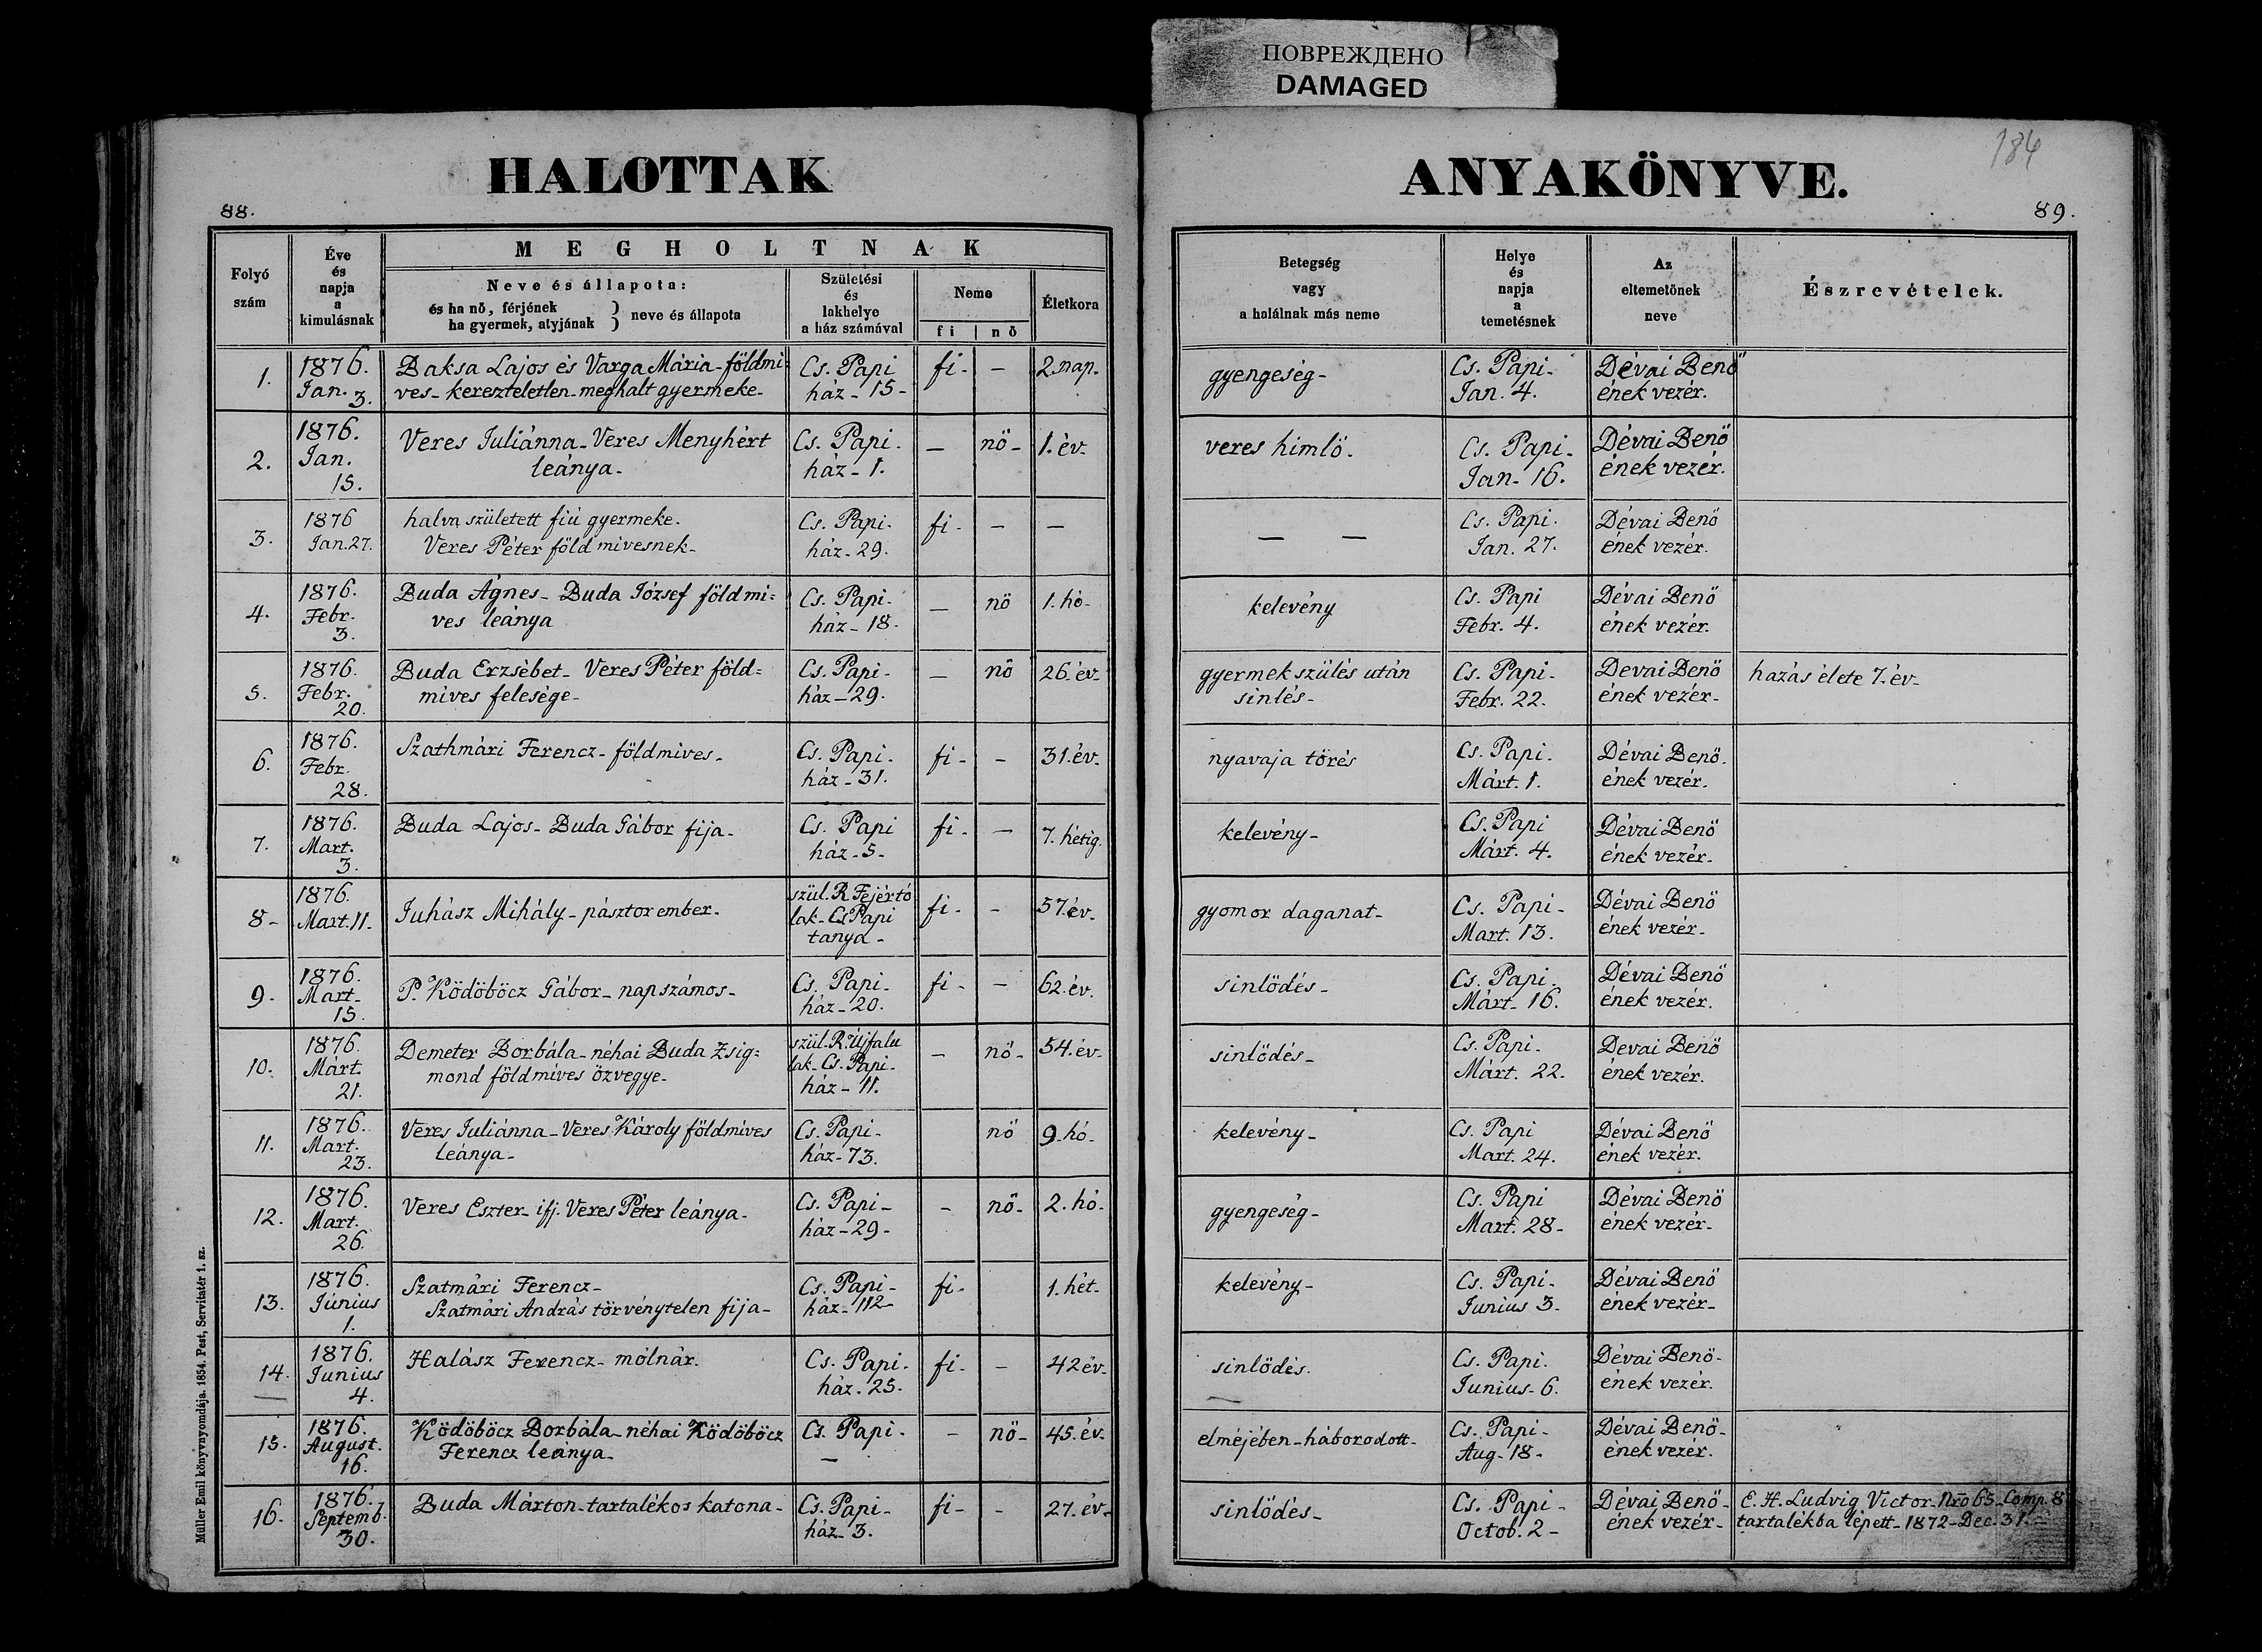 ПОВРЕЖДЕНО
DAMAGED
184
HALOTTAK
ANYAKÖNYVE.
88.
89.
MEGHOLTNAK
Folyó
szám
Éve
és
napja
a
kimulásnak
Neve és állapota:
és ha nő, férjének
ha gyermek, atyjának } neve és állapota
Születési
és
lakhelye
a ház számával
Neme
fi | nő
Életkora
Betegség
vagy
a halálnak más neme
Helye
és
napja
a
temetésnek
Az
eltemetőnek
neve
Észrevételek.
1.
1876.
Jan. 3.
Baksa Lajos és Varga Mária - földmi=
ves - kereszteletlen - meghalt gyermeke -
Cs. Papi
ház - 15 -
fi - - 2. nap.
gyengeség -
Cs. Papi -
Jan. 4.
Dévai Benő
ének vezér.
2.
1876.
Jan.
15.
Veres Juliánna - Veres Menyhért
leánya -
Cs. Papi.
ház - 1.
- nő - 1. év -
veres himlő.
Cs. Papi -
Jan - 16.
Dévai Benő
ének vezér.
3.
1876
Jan. 27.
halva született fiú gyermeke.
Veres Péter föld mivesnek -
Cs. Papi.
ház - 29.
fi - - -
- -
Cs. Papi.
Jan. 27.
Dévai Benő
ének vezér.
4.
1876.
Febr.
3.
Buda Ágnes - Buda József föld mi=
ves leánya
Cs. Papi.
ház - 18 -
- nő 1. hó -
kelevény
Cs. Papi
Febr. 4.
Dévai Benő
ének vezér.
5.
1876.
Febr.
20.
Buda Erzsébet - Veres Péter föld=
mives felesége -
Cs. Papi -
ház - 29.
- nő 26. év -
gyermek szülés után
sinlés -
Cs. Papi -
Febr. 22.
Devai Benő
ének vezér -
hazás élete 7. év -
6.
1876.
Febr.
28.
Szathmári Ferencz - földmives -
Cs. Papi.
ház - 31.
fi - - 31. év -
nyavaja törés
Cs. Papi.
Márt. 1.
Dévai Benő.
ének vezér.
7.
1876.
Mart.
3.
Buda Lajos - Buda Gábor fija -
Cs. Papi
ház - 5 -
fi - - 7. hétig.
kelevény -
Cs. Papi
Márt. 4.
Dévai Benő
ének vezér -
8 -
1876.
Mart. 11 -
Juhász Mihály - pásztor ember.
szül. R. Fejértó
lak - Cs. Papi
tanya -
fi - - 57. év -
gyomor daganat -
Cs. Papi -
Mart. 13.
Dévai Benő
ének vezér -
9.
1876.
Mart -
15.
P. Ködöböcz Gábor - napszámos -
Cs. Papi -
ház - 20.
fi - - 62. év.
sinlődés -
Cs. Papi -
Márt - 16.
Dévai Benő
ének vezér.
10.
1876.
Márt.
21.
Demeter Borbála - néhai Buda Zsig=
mond földmíves özvegye -
szül. R. Újfalu
lak - Cs. Papi -
ház - 11.
- nő - 54. év -
sinlődés -
Cs. Papi -
Márt. 22.
Devai Benő
ének vezér.
11.
1876.
Mart.
23.
Veres Juliánna - Veres Károly földmives
leánya -
Cs. Papi -
ház - 73.
nő 9 - hó -
kelevény -
Cs. Papi
Mart. 24.
Dévai Benő
ének vezér.
12.
1876.
Mart.
26.
Veres Eszter - ifj. Veres Péter leánya -
Cs. Papi -
ház - 29 -
- nő - 2. hó.
gyengeség -
Cs. Papi
Mart. 28 -
Dévai Benő
ének vezér -
13.
1876.
Június
1.
Szatmári Ferencz -
Szatmári András törvénytelen fija -
Cs. Papi -
ház - 112 -
fi - 1. hét -
kelevény -
Cs. Papi -
Junius 3 -
Dévai Benő
ének vezér -
14.
1876.
Junius
4.
Halász Ferencz - mólnár.
Cs. Papi.
ház - 25.
fi - - 42 év -
sinlődés.
Cs. Papi.
Junius - 6.
Dévai Benő -
ének vezér.
15.
1876.
August.
16.
Ködöböcz Borbála - néhai Ködöböcz
Ferencz leánya -
Cs. Papi.
-
- nő - 45. év -
elméjében - háborodott -
Cs. Papi -
Aug - 18 -
Dévai Benő -
ének vezér.
16.
1876.
Septemb.
30.
Buda Márton - tartalékos katona -
Cs. Papi -
ház - 3.
fi - - 27. év -
sinlődés -
Cs. Papi -
Octob. 2 -
Dévai Benő -
ének vezér -
E. H. Ludvig Victor - Nro 65 - Comp. 8
tartalékba lépett - 1872 - Dec. 31. -
Müller Emil könyvnyomdája. 1854. Pest, Servitatér 1. sz.